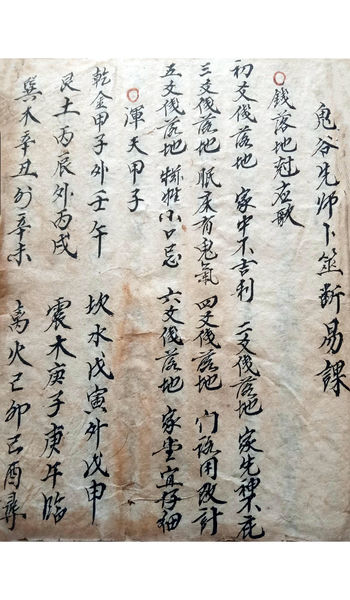 鬼谷先師卜筮断易課
錢落地尅应歌
初爻伐落地 家中不吉利 二爻伐落地 家先神不庇
三爻伐落地 眠床有鬼氣 四爻伐落地 门路用改計
五爻伐落地 小口忌 六爻伐落地 家堂宜仔细
渾天甲子
乾金甲子外壬午 坎水戊寅外戊申
艮土丙辰外丙戌 震木庚子庚午臨
巽木辛丑外辛未 离火己卯己酉尋